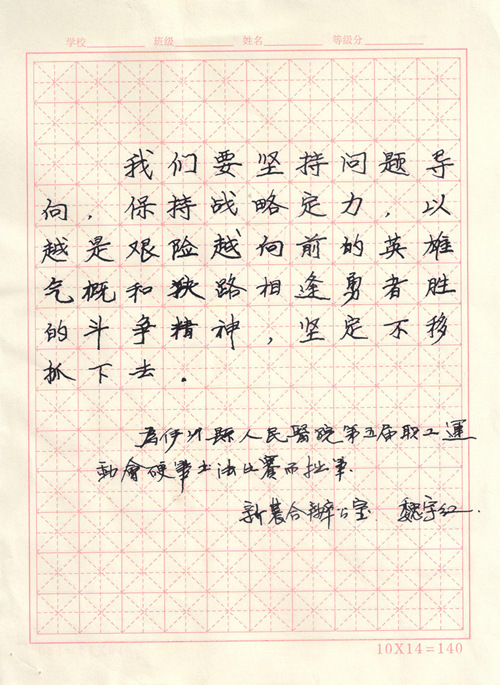 学校 班级 姓名 等级分
我们要坚持问题导
向,保持战略定力,以
越是艰险越向前的英雄
气概和狭路相逢勇者胜
的斗争精神,坚定不移
抓下去.
为伊川县人民醫院第五届职工運
動會硬筆书法比賽而拙筆.
新農合辦公室 魏宇红.
10X14=140